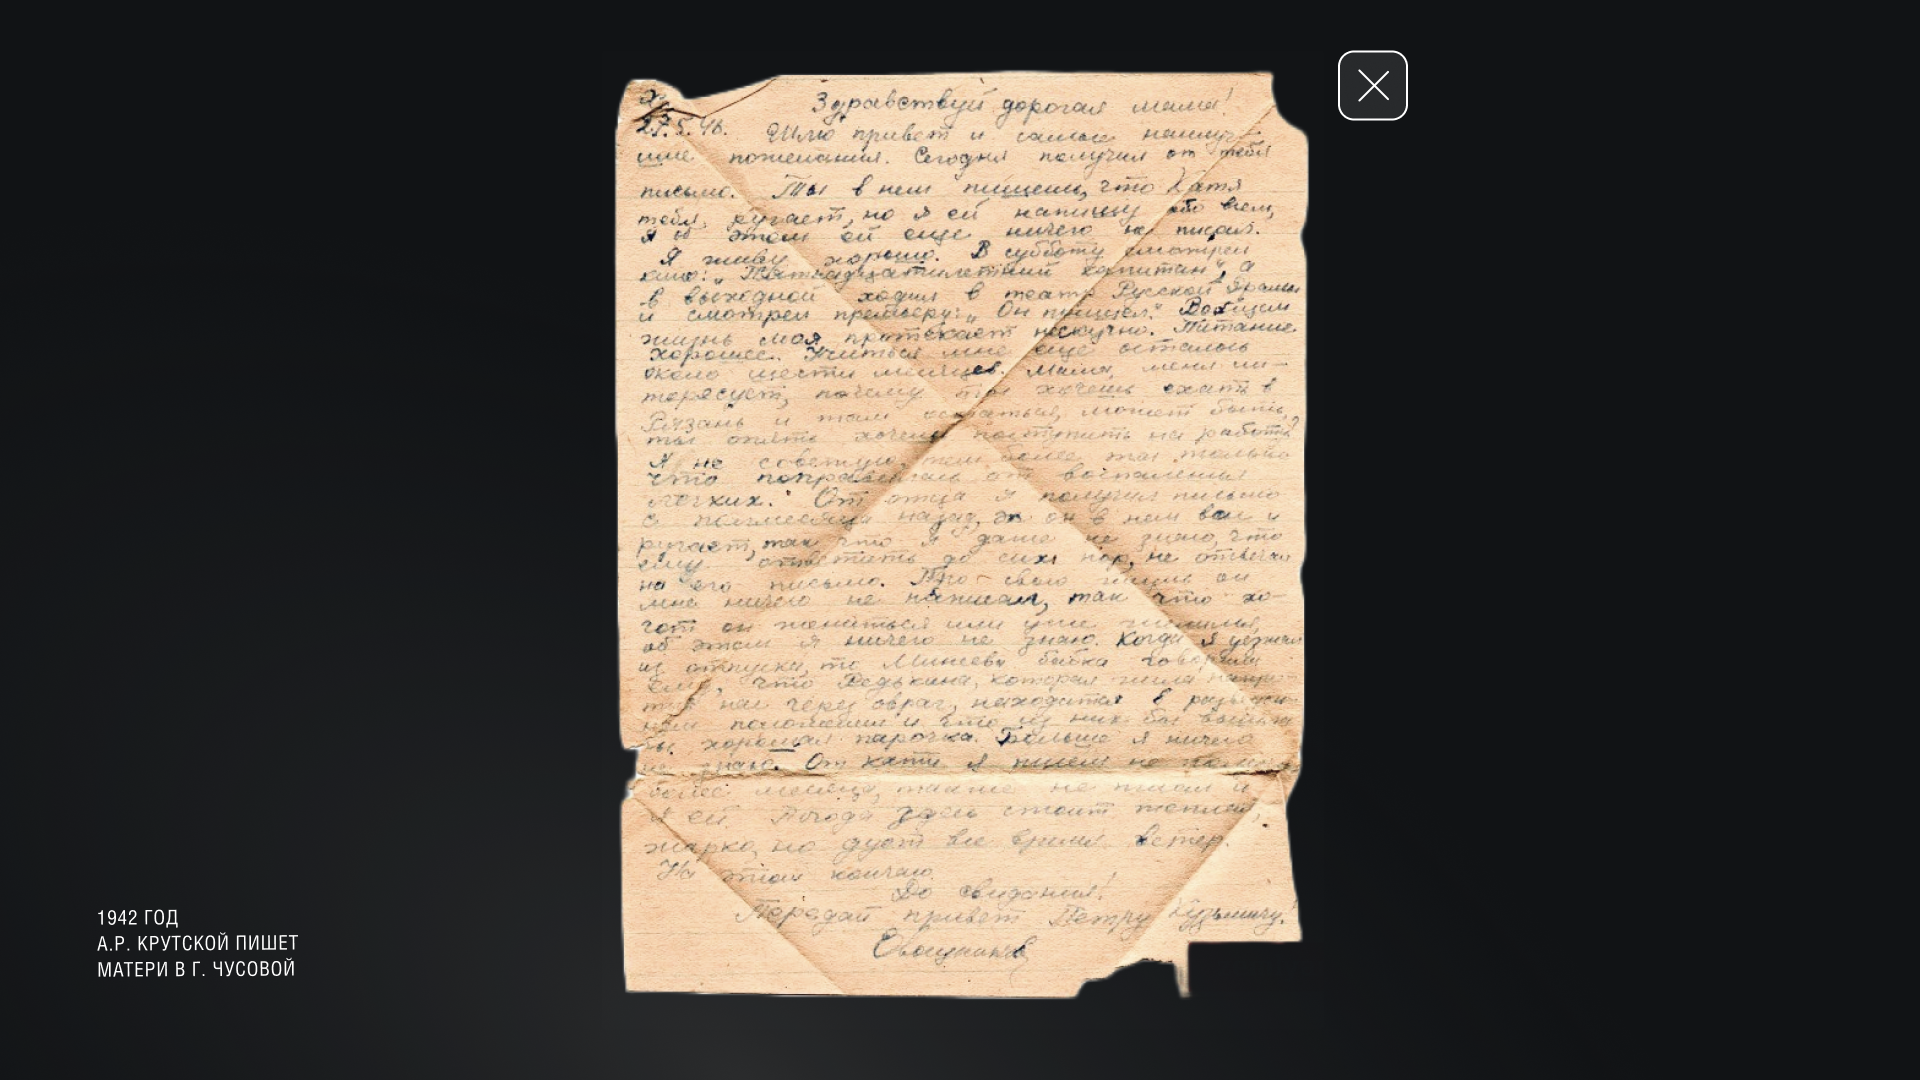 27.5.46.
Здравствуй дорогая мама!
Шлю привет и самые наилуч-
шие пожелания. Сегодня получил от тебя
письмо. Ты в нем пишешь, что Катя
тебя ругает, но я ей напишу обо всем,
я об этом ей еще ничего не писал.
Я живу хорошо. В субботу смотрел
кино: „Пятнадцатилетний капитан", а
в выходной ходил в театр Русской драмы
и смотрел премьеру: „Он пришел." Вообщем
жизнь моя протекает нескучно. Питание
хорошее. Учиться мне еще осталось
около шести месяцев. Мама, меня ин-
тересует, почему ты хочешь ехать в
Рязань и там остаться, может быть,
ты опять хочешь поступить на работу?
Я не советую, тем более ты только
что поправилась от воспаления
легких. От отца я получил письмо
с полмесяца назад, он в нем вас и
ругает, так что я даже не знаю, что
ему ответить до сих пор, не отвечал
на его письмо. Про свою жизнь он
мне ничего не написал, так что хо-
чет он жениться или уже женился,
об этом я ничего не знаю. Когда я уезжал
из отпуска, то бабка говорила
ему, что Редькина, которая жила напро-
тив нас через овраг, находится в
положении и что из них бы вышла
бы хорошая парочка. Больше я ничего
не знаю. От Кати я писем не получал
более месяца, также не писал и
я ей. Погода здесь стоит теплая,
жарко, но дует все время ветер.
На этом кончаю.
До свидания!
Передай привет Петру Кузьмичу!
1942 ГОД
А.Р. КРУТСКОЙ ПИШЕТ
МАТЕРИ В Г. ЧУСОВОЙ